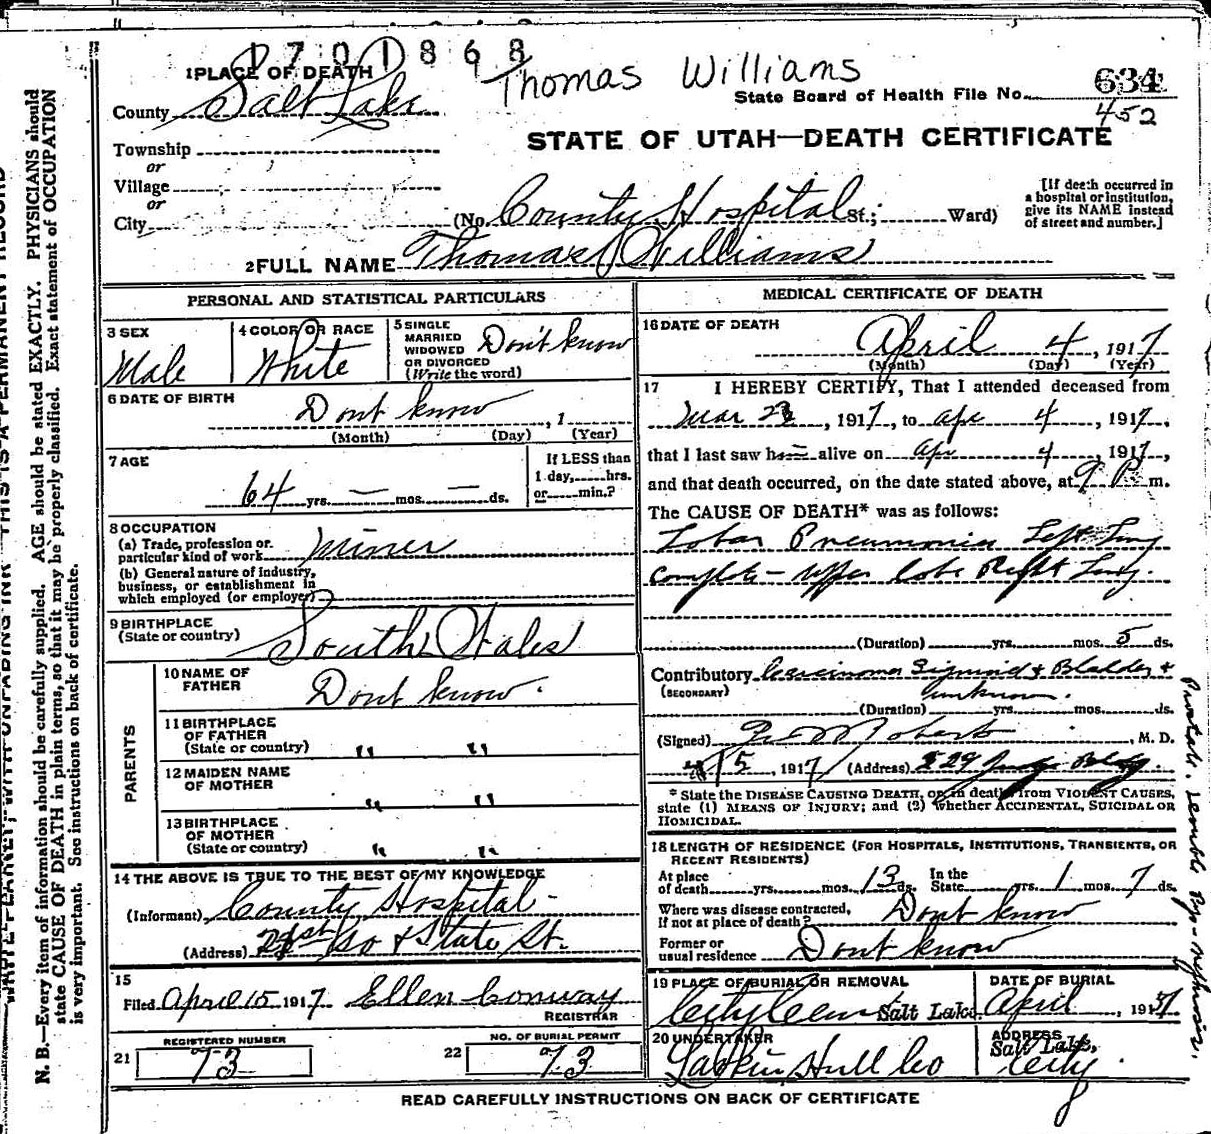 1701868
Thomas Williams
1 PLACE OF DEATH
County Salt Lake
State Board of Health File No. 634
452
STATE OF UTAH—DEATH CERTIFICATE
Township
or
Village
or
City
(No. County Hospital St.; Ward)
[If death occurred in
a hospital or institution,
give its NAME instead
of street and number.]
2 FULL NAME Thomas Williams
PERSONAL AND STATISTICAL PARTICULARS
3 SEX
Male
4 COLOR OR RACE
White
5 SINGLE
MARRIED
WIDOWED
OR DIVORCED
(Write the word)
Don't know
6 DATE OF BIRTH
Dont know , 1
(Month) (Day) (Year)
7 AGE
64 yrs. — mos. — ds.
If LESS than
1 day, hrs.
or min.?
8 OCCUPATION
(a) Trade, profession or
particular kind of work Miner
(b) General nature of industry,
business, or establishment in
which employed (or employer)
9 BIRTHPLACE
(State or country) South Wales
PARENTS
10 NAME OF
FATHER Dont know.
11 BIRTHPLACE
OF FATHER
(State or country) " "
12 MAIDEN NAME
OF MOTHER " "
13 BIRTHPLACE
OF MOTHER
(State or country) " "
14 THE ABOVE IS TRUE TO THE BEST OF MY KNOWLEDGE
(Informant) County Hospital -
(Address) 21st So & State St.
15
Filed April 15 1917 Ellen Conway
REGISTRAR
21 REGISTERED NUMBER
73
22 NO. OF BURIAL PERMIT
73
MEDICAL CERTIFICATE OF DEATH
16 DATE OF DEATH
April 4, 1917
(Month) (Day) (Year)
17 I HEREBY CERTIFY, That I attended deceased from
Mar 23, 1917, to Apr 4, 1917,
that I last saw h alive on Apr 4, 1917,
and that death occurred, on the date stated above, at 9 P. m.
The CAUSE OF DEATH* was as follows:
Lobar Pneumonia Left Lung
complete - upper lobe Right Lung.
(Duration) yrs. mos. 5 ds.
Contributory Carcinoma Sigmoid & Bladder &
(SECONDARY) unknown.
(Duration) yrs. mos. ds.
(Signed) Roberts, M. D.
5, 1917 (Address) 529 Judge Bldg.
* State the DISEASE CAUSING DEATH, or, in deaths from VIOLENT CAUSES,
state (1) MEANS OF INJURY; and (2) whether ACCIDENTAL, SUICIDAL OR
HOMICIDAL.
18 LENGTH OF RESIDENCE (FOR HOSPITALS, INSTITUTIONS, TRANSIENTS, OR
RECENT RESIDENTS)
At place
of death yrs. mos. 13 ds.
In the
State yrs. 1 mos. 7 ds.
Where was disease contracted,
If not at place of death? Dont know
Former or
usual residence Dont know
19 PLACE OF BURIAL OR REMOVAL
City Cem Salt Lake.
DATE OF BURIAL
April , 1917
20 UNDERTAKER
Larkin Hull Co
ADDRESS
Salt Lake,
City.
READ CAREFULLY INSTRUCTIONS ON BACK OF CERTIFICATE
THIS IS A PERMANENT RECORD
N. B.—Every item of information should be carefully supplied. AGE should be stated EXACTLY. PHYSICIANS should
state CAUSE OF DEATH in plain terms, so that it may be properly classified. Exact statement of OCCUPATION
is very important. See instructions on back of certificate.
Prostate. Double Pyo-nephrosis.